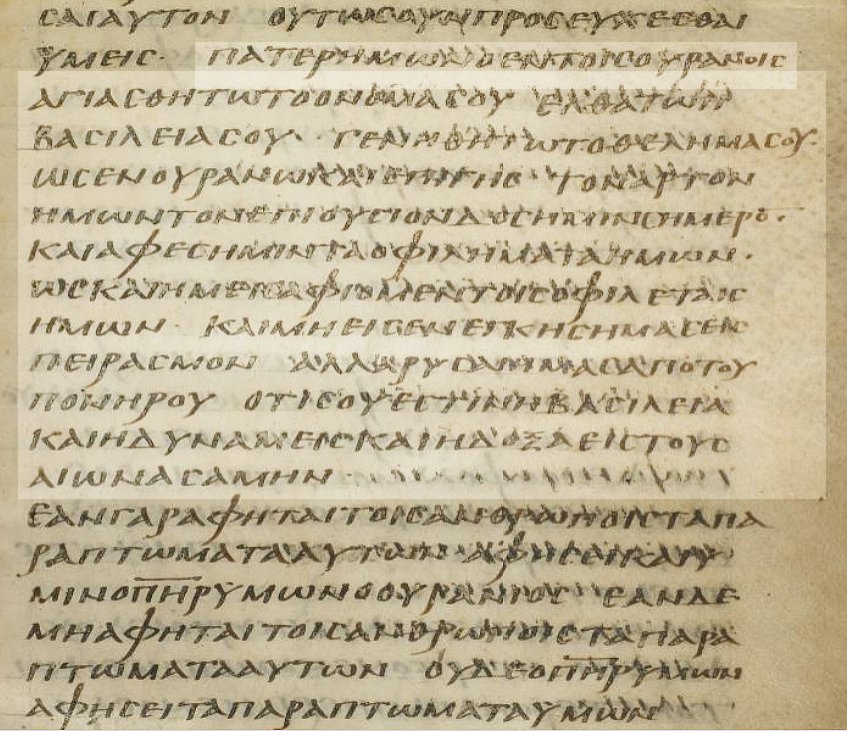 CΑΙΑΥΤΟΝ ΟΥΤΩCΟΥΝΠΡΟCΕΥΧΕCΘΑΙ
ΥΜΕΙC· ΠΑΤΕΡΗΜΩΝΟΕΝΤΟΙCΟΥΡΑΝΟΙC
ΑΓΙΑCΘΗΤΩΤΟΟΝΟΜΑCΟΥ ΕΛΘΑΤΩΗ
ΒΑCΙΛΕΙΑCΟΥ· ΓΕΝΗΘΗΤΩΤΟΘΕΛΗΜΑCΟΥ·
ΩCΕΝΟΥΡΑΝΩΚΑΙΕΠΙΓΗC ΤΟΝΑΡΤΟΝ
ΗΜΩΝΤΟΝΕΠΙΟΥCΙΟΝΔΟCΗΜΙΝCΗΜΕΡΟ·
ΚΑΙΑΦΕCΗΜΙΝΤΑΟΦΙΛΗΜΑΤΑΗΜΩΝ·
ΩCΚΑΙΗΜΕΙCΑΦΙΟΜΕΝΤΟΙCΟΦΙΛΕΤΑΙC
ΗΜΩΝ· ΚΑΙΜΗΕΙCΕΝΕΓΚΗCΗΜΑCΕΙC
ΠΕΙΡΑCΜΟΝ ΑΛΛΑΡΥCΑΙΗΜΑCΑΠΟΤΟΥ
ΠΟΝΗΡΟΥ ΟΤΙCΟΥΕCΤΙΝΗΒΑCΙΛΕΙΑ
ΚΑΙΗΔΥΝΑΜΕΙCΚΑΙΗΔΟΞΑΕΙCΤΟΥC
ΑΙΩΝΑCΑΜΗΝ
ΕΑΝΓΑΡΑΦΗΤΑΙΤΟΙCΑΝΘΡΩΠΟΙCΤΑΠΑ
ΡΑΠΤΩΜΑΤΑΑΥΤΩΝ ΑΦΗCΕΙΚΑΙΥ
ΜΙΝΟΠ̅Η̅Ρ̅ΥΜΩΝΟΟΥΡΑΝΙΟC ΕΑΝΔΕ
ΜΗΑΦΗΤΑΙΤΟΙCΑΝΘΡΩΠΟΙCΤΑΠΑΡΑ
ΠΤΩΜΑΤΑΑΥΤΩΝ ΟΥΔΕΟΠ̅Η̅Ρ̅ΥΜΩΝ
ΑΦΗCΕΙΤΑΠΑΡΑΠΤΩΜΑΤΑΥΜΩΝ